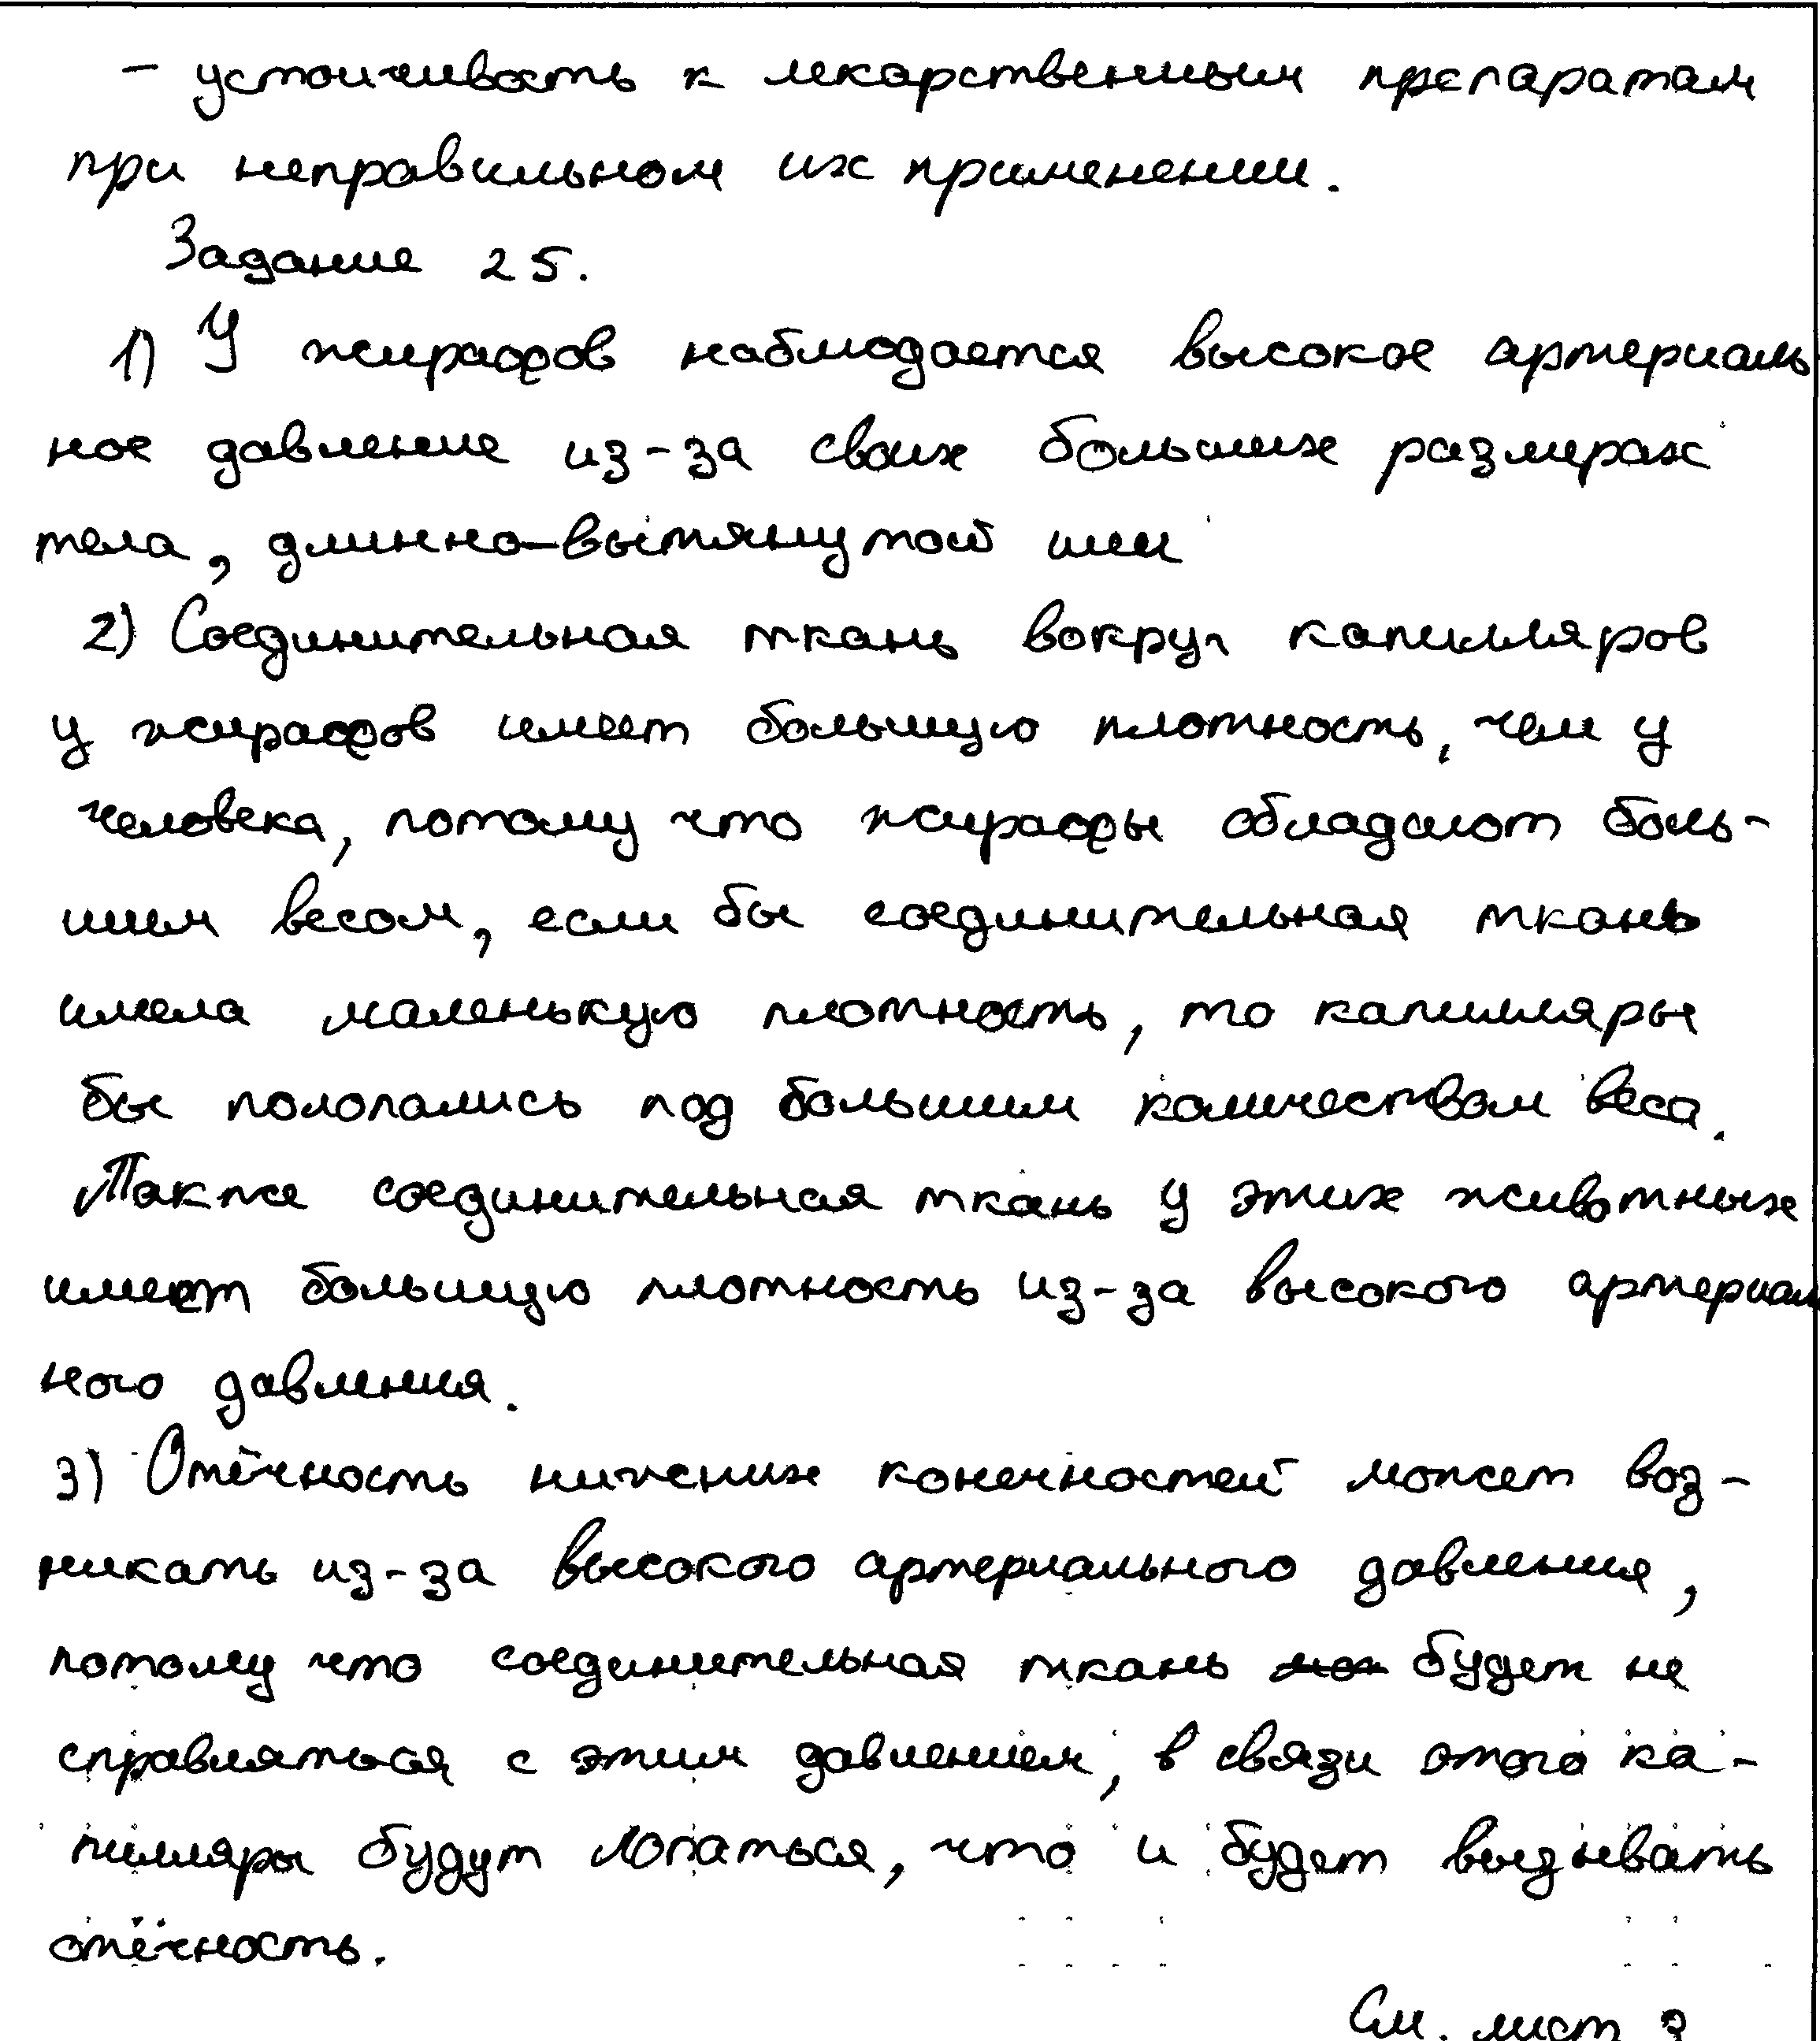 - устоичивость к лекарственным препаратам
при неправильном их применении.
Задание 25.
1) У жирафов наблюдается высокое артериаль
ное давление из-за своих больших размерах
тела, длинно-вытянутой шеи
2) Соединительная ткань вокруг капилляров
у жирафов имеет большую плотность, чем у
человека, потому что жирафы обладают боль-
шим весом, если бы соединительная ткань
имела маленькую плотность, то капилляры
бы полопались под большим количеством веса.
Также соединительная ткань у этих животных
имеет большую плотность из-за высокого артериал
ного давления.
3) Отёчность нижних конечностей может воз-
никать из-за высокого артериального давления,
потому что соединительная ткань будет не
справляться с этим давлением, в связи этого ка-
пилляры будут лопаться, что и будет вызывать
отёчность.
См. лист 3